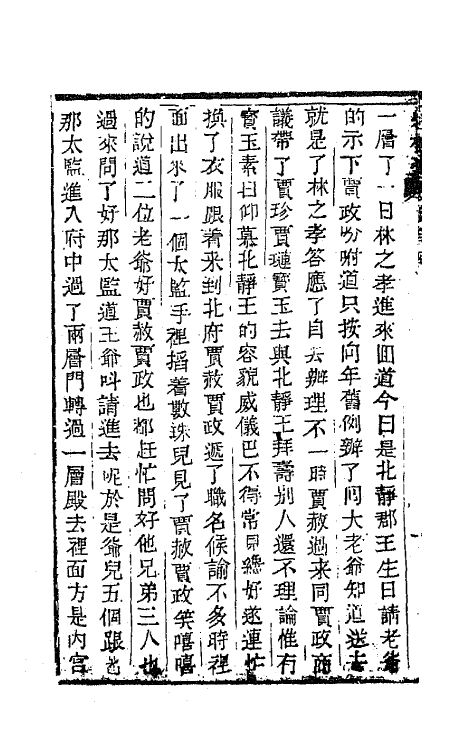 一層了一日林之孝進來囘道今日是北靜郡王生日請老爺
的示下賈政吩咐道只按向年舊例辦了囘大老爺知道送去
就是了林之孝答應了自去辦理不一時賈赦過来同賈政商
議帶了賈珍賈璉寶玉去與北靜王拜壽别人還不理論惟有
寳玉素日仰慕北靜王的容貌威儀巴不得常見纔好遂連忙
換了衣服跟着来到北府賈赦賈政遞了職名候諭不多時裡
面出來了一個太監手裡掐着數珠兒見了賈赦賈政笑嘻嘻
的說道二位老爺好賈赦賈政也都赶忙問好他兄弟三人也
過來問了好那太監道王爺呌請進去呢於是爺兒五個跟着
那太監進入府中過了兩層門轉過一層殿去裡面方是内宫